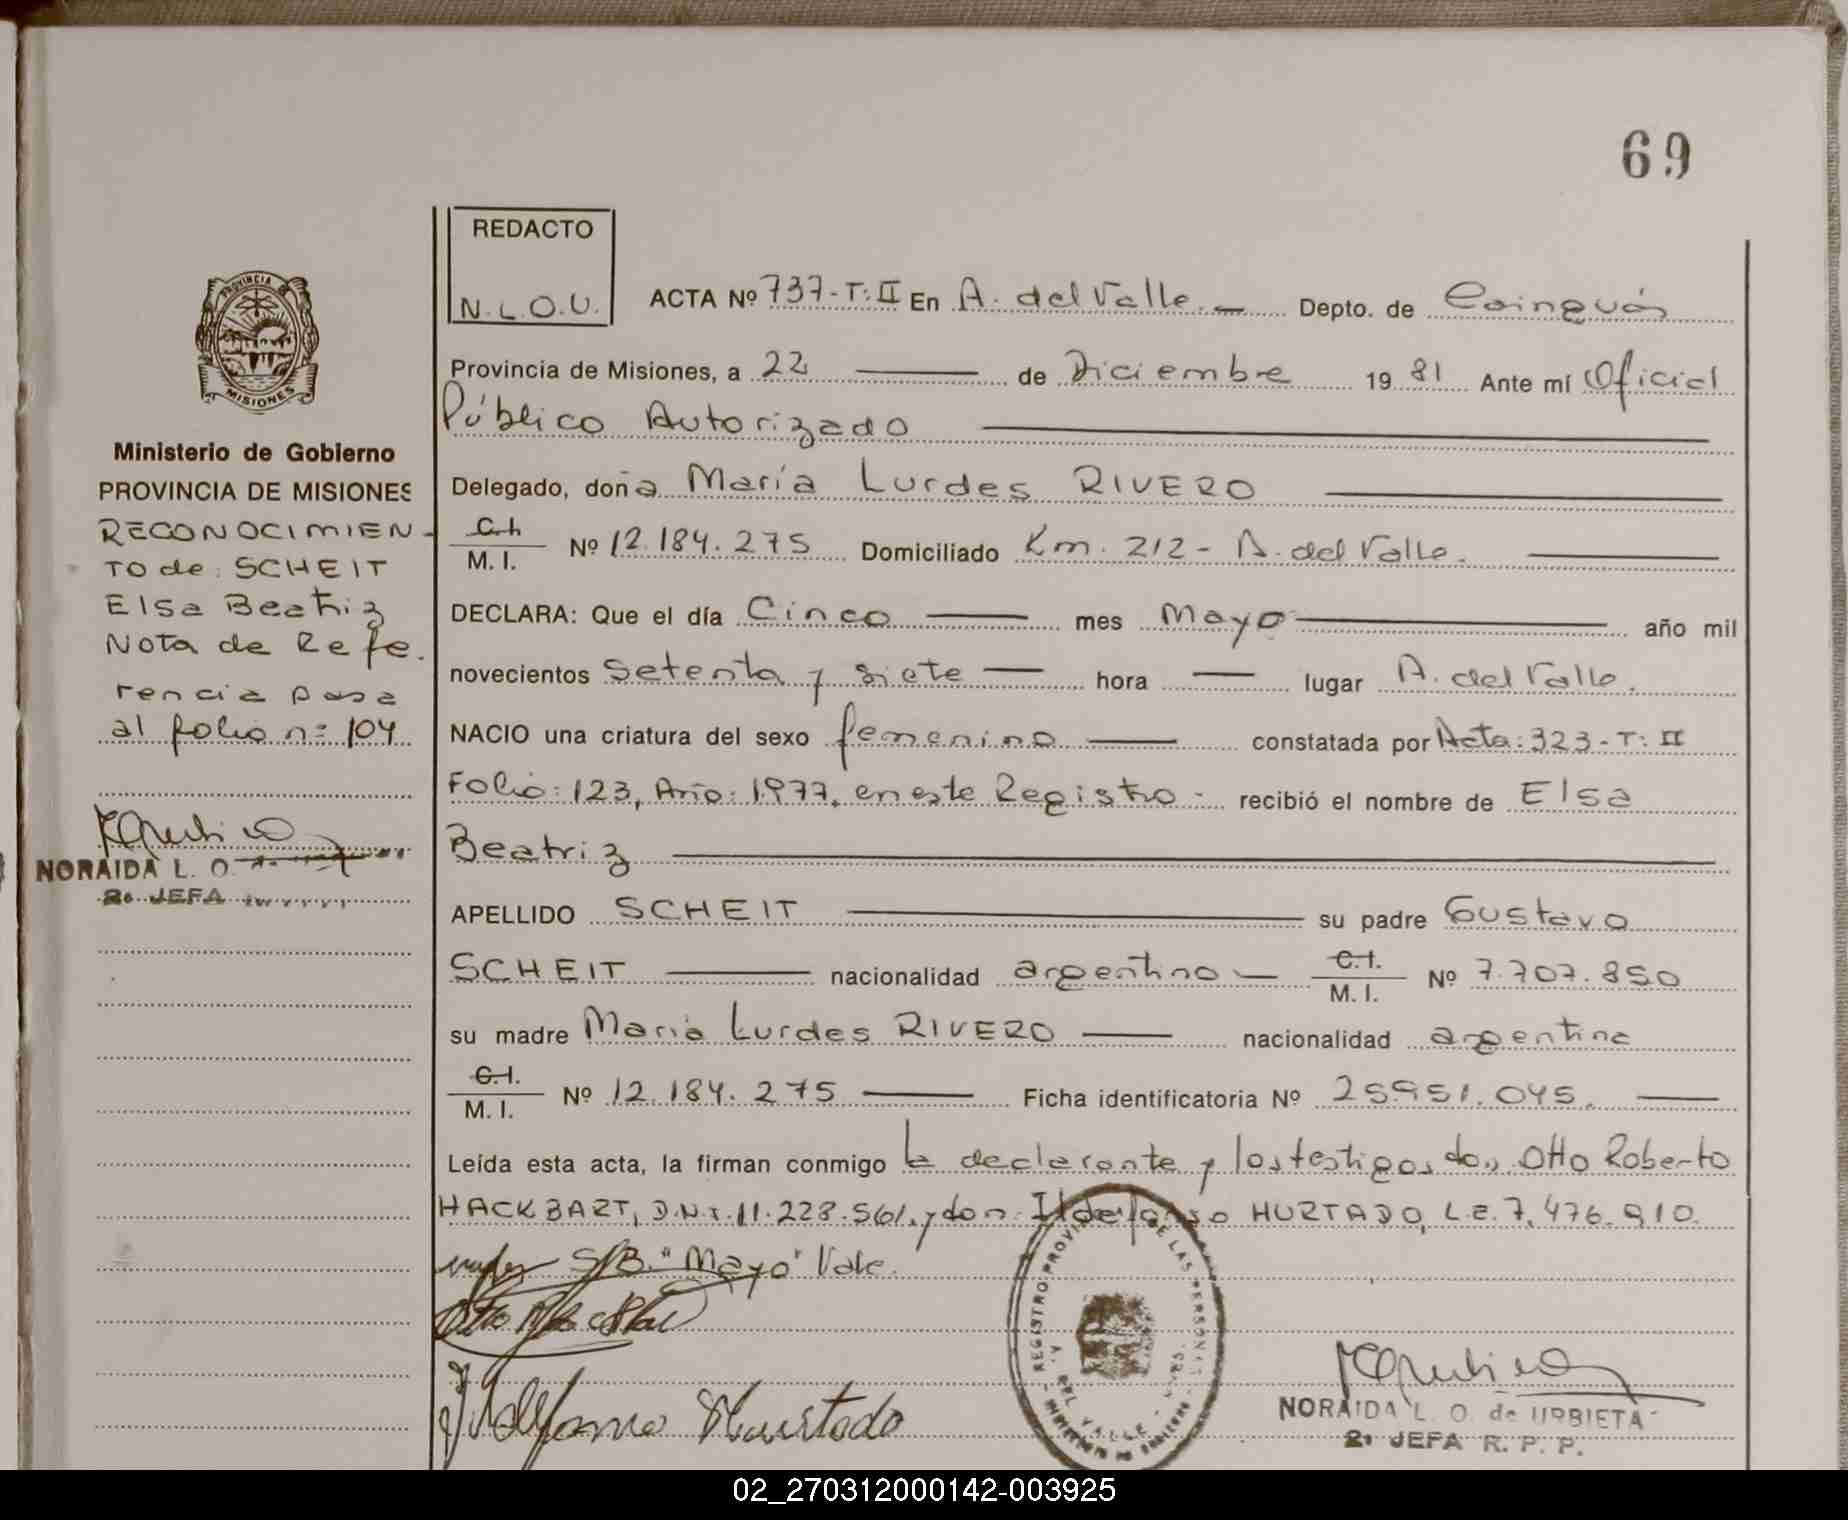 69
REDACTO
N.L.O.U.
ACTA Nº 737-T:II En A. del Valle.- Depto. de Cainguás
Provincia de Misiones, a 22 de Diciembre 1981 Ante mí Oficial
Público Autorizado
Delegado, doña María Lurdes RIVERO
C.I. M.I. Nº 12.184.275 Domiciliado Km. 212- A. del Valle.
DECLARA: Que el día Cinco mes Mayo año mil
novecientos setenta y siete hora lugar A. del Valle.
NACIO una criatura del sexo femenino constatada por Acta: 323-T: II
Folio: 123, Año: 1977, en este Registro- recibió el nombre de Elsa
Beatriz
APELLIDO SCHEIT su padre Gustavo
SCHEIT nacionalidad argentino C.I. M.I. Nº 7.707.850
su madre María Lurdes RIVERO nacionalidad argentina
C.I. M.I. Nº 12.184.275 Ficha identificatoria Nº 25951.045.
Leída esta acta, la firman conmigo la declarante y los testigos, don Otto Roberto
HACKBART, D.N.I. 11.228.561, y don Ildefonso HURTADO, L.E. 7.476.910.
S/B. "Mayo" Vale.
Ildefonso Hurtado
REGISTRO PROVINCIAL DE LAS PERSONAS
A. DEL VALLE
NORAIDA L. O. de URBIETA
2ª JEFA R. P. P.
PROVINCIA DE
MISIONES
Ministerio de Gobierno
PROVINCIA DE MISIONES
RECONOCIMIEN-
TO de: SCHEIT
Elsa Beatriz
Nota de Refe.
rencia pasa
al folio nº 104
NORAIDA L. O.
2ª JEFA
02_270312000142-003925